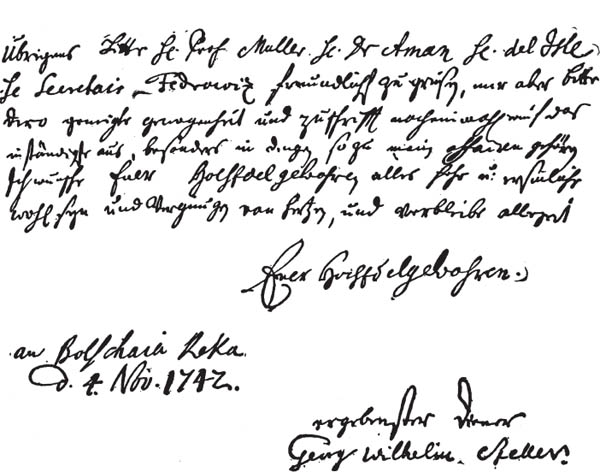 Übrigens bitte H. Prof Muller. H. Dr Aman H. del Isle
H. Secretair Fedrowiz freundlichst zu grüßen, mir aber bitte
Dero geneigte gewogenheit und zuschrifft nocheinmahl auf das
inständigste aus besonders in dingen so zu mein gehören
Ich wünsche Euer Hochedelgebohren alles Hohe u. ersinnliche
wohl seyn und Vergnügen von Hertzen, und verbleibe allezeit
Euer Hochedelgebohren.
an Bolschaia Reka.
d. 4. Nov. 1742.
ergebenster Diener
Georg Wilhelm. Steller.